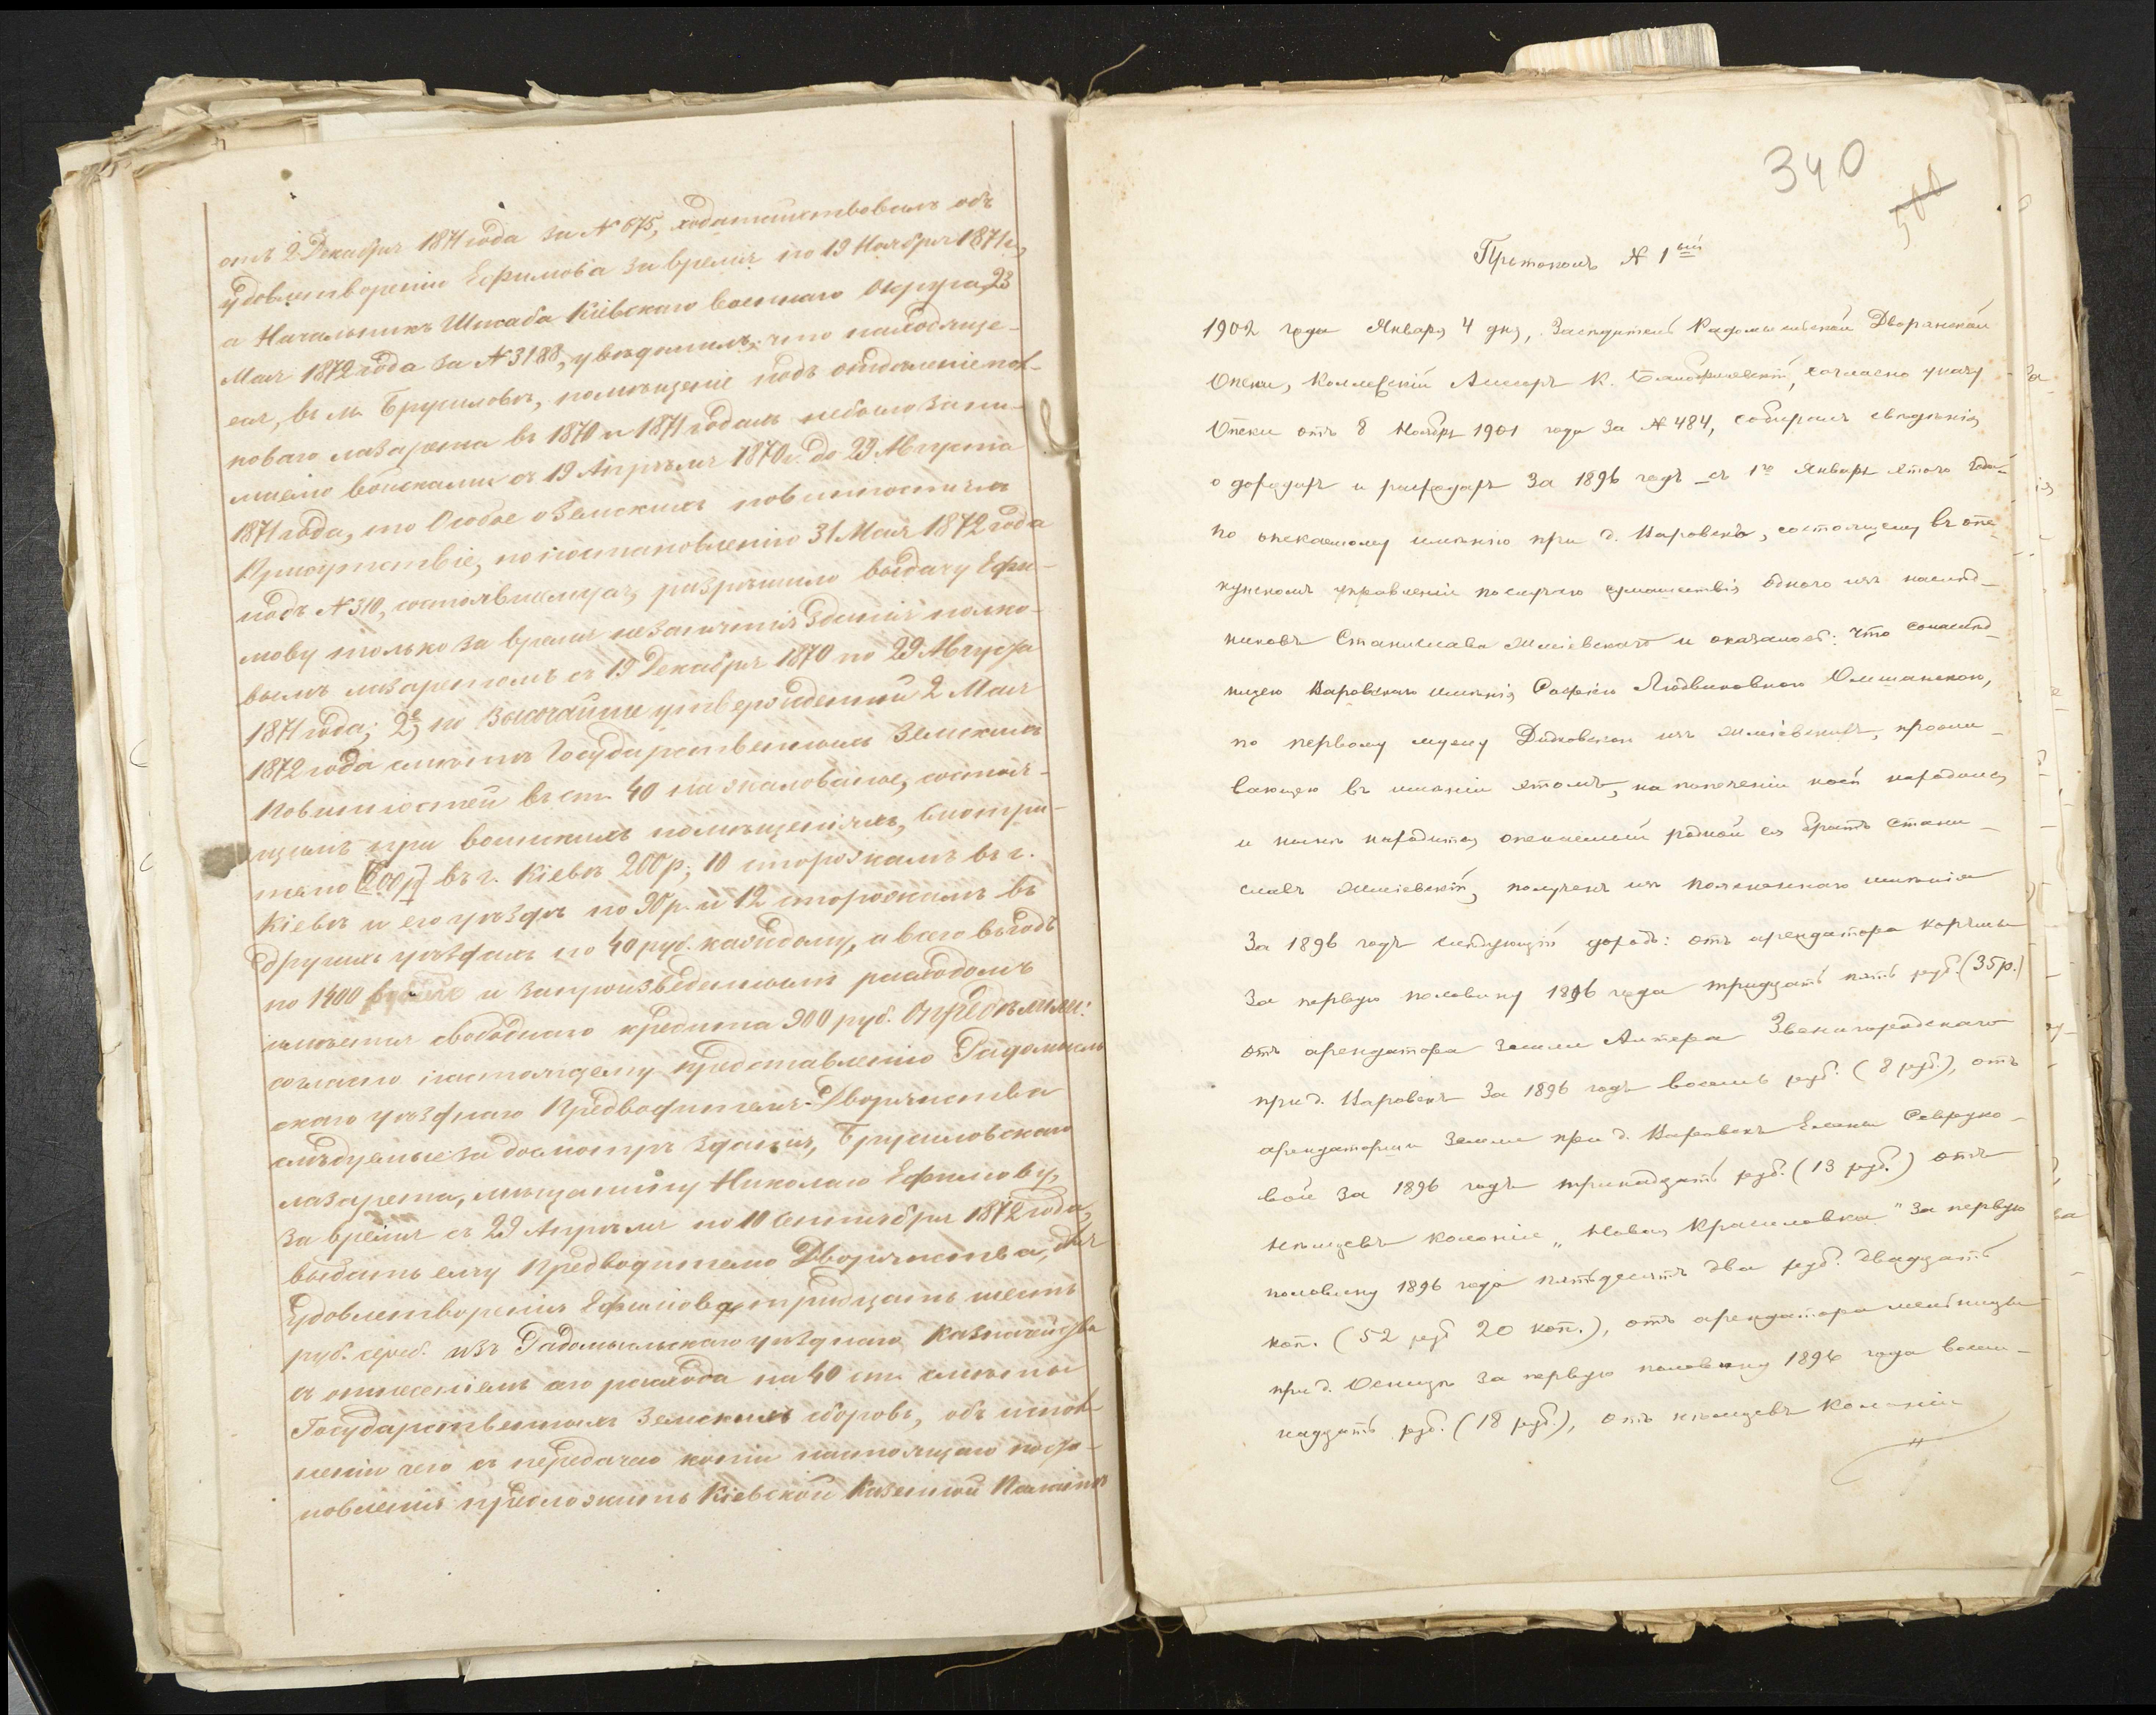 отъ 2 Декабря 1871 года за № 675, ходатайствовалъ объ
удовлетвореніи Ефимова за время по 19 Ноября 1871 г.,
а Начальникъ Штаба Кіевскаго военнаго Округа, 23
Мая 1872 года за № 3188, увѣдомилъ, что находяще-
еся, въ м. Брусиловѣ, помѣщеніе подъ отдѣленіе пол-
коваго лазарета въ 1870 и 1871 годахъ небыло зани-
маемо войсками съ 19 Апрѣля 1870 г. до 29 Августа
1871 года, то Особое о Земскихъ повинностяхъ
Присутствіе, по постановленію 31 Мая 1872 года
подъ № 310, состоявшемуся, разрѣшило выдачу Ефи-
мову только за время незанятія зданія полко-
вымъ лазаретомъ съ 19 Декабря 1870 по 29 Августа
1871 года; 2е, по Высочайше утвержденной 2 Мая
1872 года смѣтѣ Государственныхъ Земскихъ
Повинностей въ ст. 40 на жалованье, состоя-
щимъ при воинскихъ помѣщеніяхъ, смотри-
телю въ г. Кіевѣ 200 р; 10 сторожамъ въ г.
Кіевѣ и его уѣздѣ по 90 р. и 12 сторожамъ въ
другихъ уѣздахъ по 40 руб. каждому, а всего въ годъ
по 1400 и запроизведеннымъ расходомъ
имѣется свободнаго кредита 900 руб. Опредѣлили:
согласно настоящему представленію Радомысль
скаго уѣзднаго Предводителя Дворянства
слѣдуемые за досмотръ зданія, Брусиловскаго
лазарета, мѣщанину Николаю Ефимову,
за время съ 29 Апрѣля по 10 Сентября 1872 года,
выдать ему Предводителю Дворянства, для
удовлетворенія Ефимова, тридцать шесть
руб. сереб. изъ Радомысльскаго уѣзднаго Казначейства
съ отнесеніемъ его расхода на 40 ст. смѣты
Государственныхъ Земскихъ сборовъ, объ испол
неніи чего съ передачею копіи настоящаго поста-
новленія предложить Кіевской Казенной Палатѣ
340
500
Протоколъ № 1ый
1902 года Января 4 дня, Засѣдатель Радомысльской Дворянской
Опеки, Коллежскій Ассесоръ К. согласно указу
Опеки отъ 8 Ноября 1901 года за № 484, собиралъ свѣдѣнія
о доходахъ и расходахъ за 1896 годъ – съ 1го Января этого года –
по опекаемому имѣнію при д. Наровекъ, состоящему въ опе
кунскомъ управленіи по случаю сумашествія одного изъ наслѣд–
никовъ Станислава и оказалось: что сонаслѣд–
ницею имѣнія Софіею Людвиковною Олишанскою,
по первому мужу Дидковскою изъ прожи–
вающею въ имѣніи этомъ, на попеченіи коей находился
и нынѣ находится опекаемый родной ея братъ Стани–
славъ полученъ изъ поясненнаго имѣнія
За 1896 годъ слѣдующій доходъ: отъ арендатора корчмы
За первую половину 1896 года тридцать пять руб. (35 р.)
отъ арендатора земли Звенигородскаго
при д. за 1896 годъ восемь руб. (8 руб.), отъ
арендаторши земли при д. Елены
вой за 1896 годъ тринадцать руб. (13 руб.) отъ
нѣмцевъ колоніи „Новая Крашловка" за первую
половину 1896 года пятьдесятъ два руб. двадцать
коп. (52 руб 20 коп.), отъ арендатора мельницы
при д. за первую половину 1896 года восем–
надцать руб. (18 руб.), отъ нѣмцевъ Колоніи